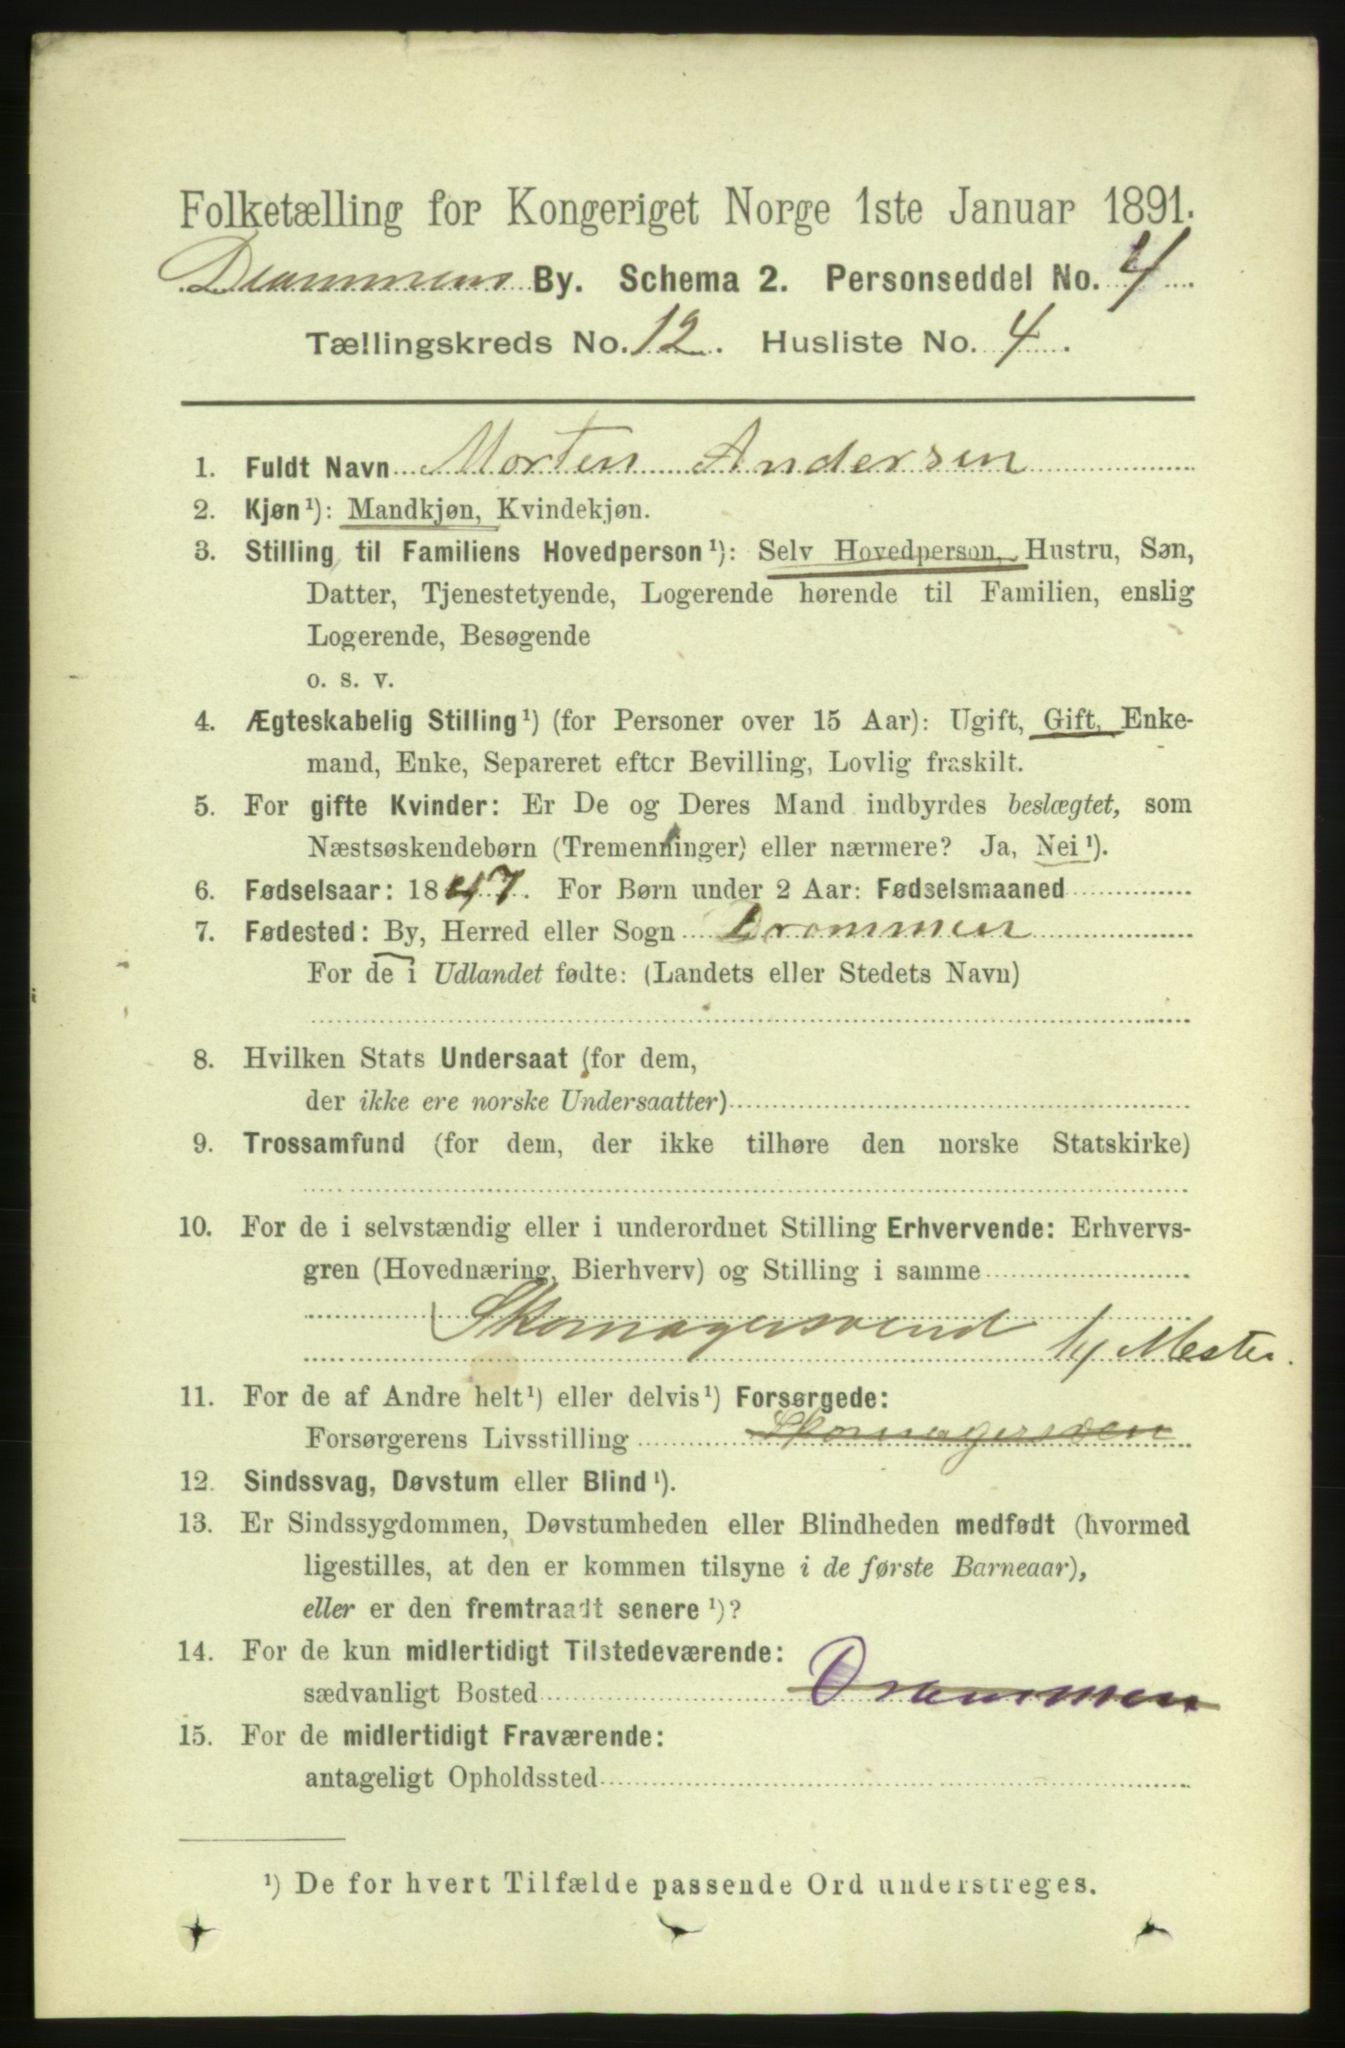 Folketælling for Kongeriget Norge 1ste Januar 1891.
Drammens By. Schema 2. Personseddel No. 4
Tællingskreds No. 12. Husliste No. 4.
1. Fuldt Navn Morten Andersen
2. Kjøn ¹): Mandkjøn, Kvindekjøn.
3. Stilling til Familiens Hovedperson ¹): Selv Hovedperson, Hustru, Søn,
Datter, Tjenestetyende, Logerende hørende til Familien, enslig
Logerende, Besøgende
o. s. v.
4. Ægteskabelig Stilling ¹) (for Personer over 15 Aar): Ugift, Gift, Enke-
mand, Enke, Separeret efter Bevilling, Lovlig fraskilt.
5. For gifte Kvinder: Er De og Deres Mand indbyrdes beslægtet, som
Næstsøskendebørn (Tremenninger) eller nærmere? Ja, Nei ¹).
6. Fødselsaar: 1847. For Børn under 2 Aar: Fødselsmaaned
7. Fødested: By, Herred eller Sogn Drammen
For de i Udlandet fødte: (Landets eller Stedets Navn)
8. Hvilken Stats Undersaat (for dem,
der ikke ere norske Undersaatter)
9. Trossamfund (for dem, der ikke tilhøre den norske Statskirke)
10. For de i selvstændig eller i underordnet Stilling Erhvervende: Erhvervs-
gren (Hovednæring, Bierhverv) og Stilling i samme
Skomagersvend Mester.
11. For de af Andre helt ¹) eller delvis ¹) Forsørgede:
Forsørgerens Livsstilling Skomagersven
12. Sindssvag, Døvstum eller Blind ¹).
13. Er Sindssygdommen, Døvstumheden eller Blindheden medfødt (hvormed
ligestilles, at den er kommen tilsyne i de første Barneaar),
eller er den fremtraadt senere ¹)?
14. For de kun midlertidigt Tilstedeværende:
sædvanligt Bosted Drammen
15. For de midlertidigt Fraværende:
antageligt Opholdssted
¹) De for hvert Tilfælde passende Ord understreges.